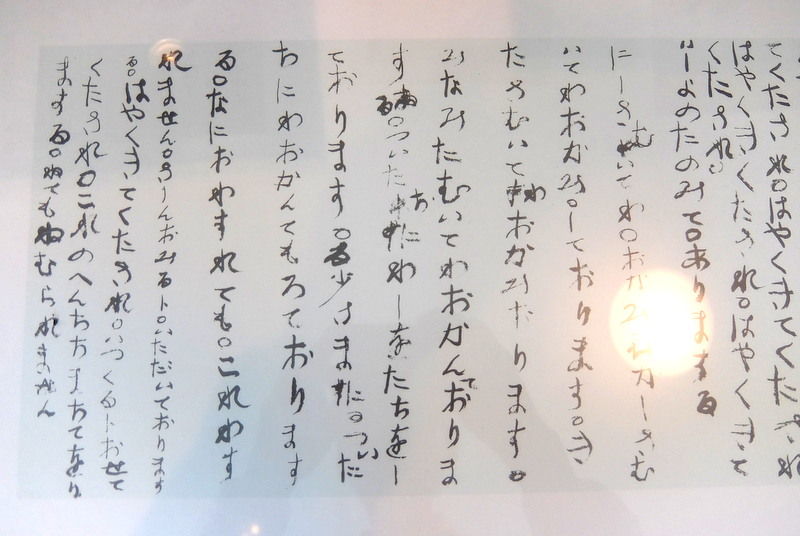 てくたされ。はやくきてくたされ
はやくきてくたされ。はやくきて
くたされ。
いしよのたのみて。ありまする
にしさむいてわ。おかみ。ひかしさむ
いてわおかみ。しております。き
たさむいてわおかみおります。
みなみたむいてわおかんておりま
す。ついたちにわしをたちをし
ております。る少さまに。ついた
ちにわおかんてもろております
る。なにおわすれても。これわす
れません。さしんおみるト。いただいております
る。はやくきてくたされ。いつくるトおせて
くたされ。これのへんちちまちてをり
まする。ねてもねむられません